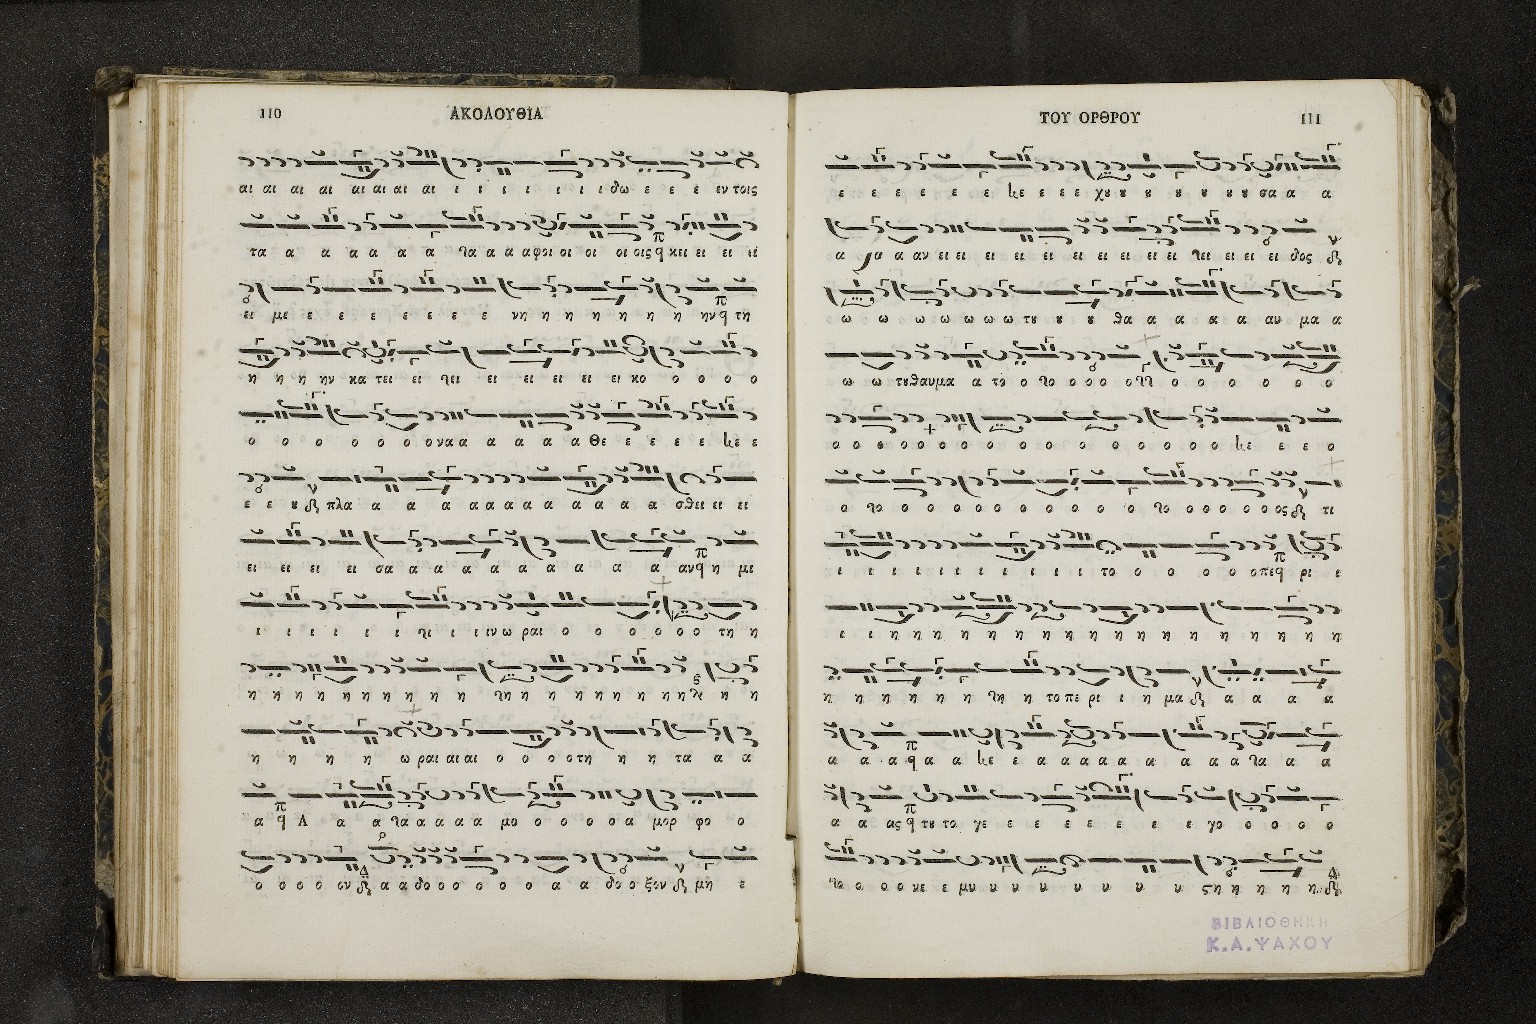 110 ΑΚΟΛΟΥΘΙΑ
αι αι αι αι αι αι αι αι ι ι ι ι ι ι ι δω ε ε ε εν τοις
τα α α α α α α α α α α φοι οι οι οι οις κει ει ει ει
ει με ε ε ε ε ε ε ε νη η η η η η η ην τη
η η η ην κα τει ει ει ει ει ει ει ει κο ο ο ο ο
ο ο ο ο ο ο ο ο να α α α α α α θε ε ε ε ε ε ε
ε ε υ πλα α α α α α α α α α α α α σθει ει ει
ει ει ει ει σα α α α α α α α α α α αν η μι
ι ι ι ι ι ι ι ι ι ιν ω ραι ο ο ο ο ο ο τη η
η η η η η η η η η η η η η η η η η η η η η
η η η η ω ραι αι αι ο ο ο ο τη η η τα α α
α Α α α α α α α α μο ο ο ο ο α μορ φο ο
ο ο ο ο ον α α δο ο ο ο ο ο ο α α δο ο ξον μη ε
ΤΟΥ ΟΡΘΡΟΥ 111
ε ε ε ε ε ε ε ε ε ε χου ου ου ου ου ου ου σα α α
α α α αν ει ει ει ει ει ει ει ει ει ει ει ει ει ει δος
ω ω ω ω ω ω ω του ου ου θα α α α α α αυ μα α
ω ω του θαυμα α το ο ο ο ο ο ο ο ο ο ο ο ο ο
ο ο ο ο ο ο ο ο ο ο ο ο ο ο ο ο ο ε ε ε ο
ο ο ο ο ο ο ο ο ο ο ο ο ο ο ο ο ος τι
ι ι ι ι ι ι ι ι ι ι ι το ο ο ο ο ο πε ρι ι
ι ι η η η η η η η η η η η η η η η η η η
η η η η η η η το πε ρι ι η μα α α α α
α α α α α ε ε α α α α α α α α α α α α
α α ας του το γε ε ε ε ε ε ε ε γο ο ο ο ο
ο ο ο ο κε ε μυ υ υ υ υ υ υ υ υ στη η η η η
ΒΙΒΛΙΟΘΗΚΗ
Κ.Α.ΨΑΧΟΥ